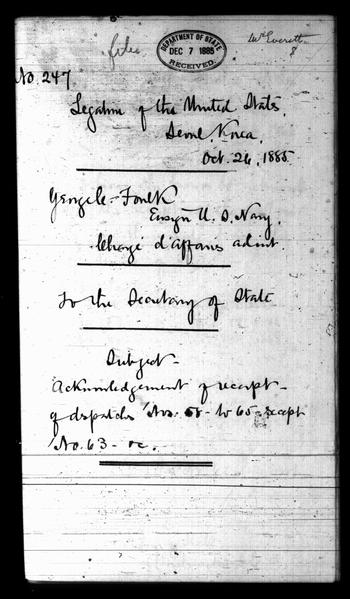 file
DEPARTMENT OF STATE
DEC 7 1885
RECEIVED.
Mr Everett
8
No. 247
Legation of the United States,
Seoul, Korea,
Oct. 26, 1885
George C. Foulk
Ensign U. S. Navy,
Chargé d'Affaires ad int
To the Secretary of State
Subject-
Acknowledgement of receipt-
of dispatches Nos. to 65- except
No. 63- &c.